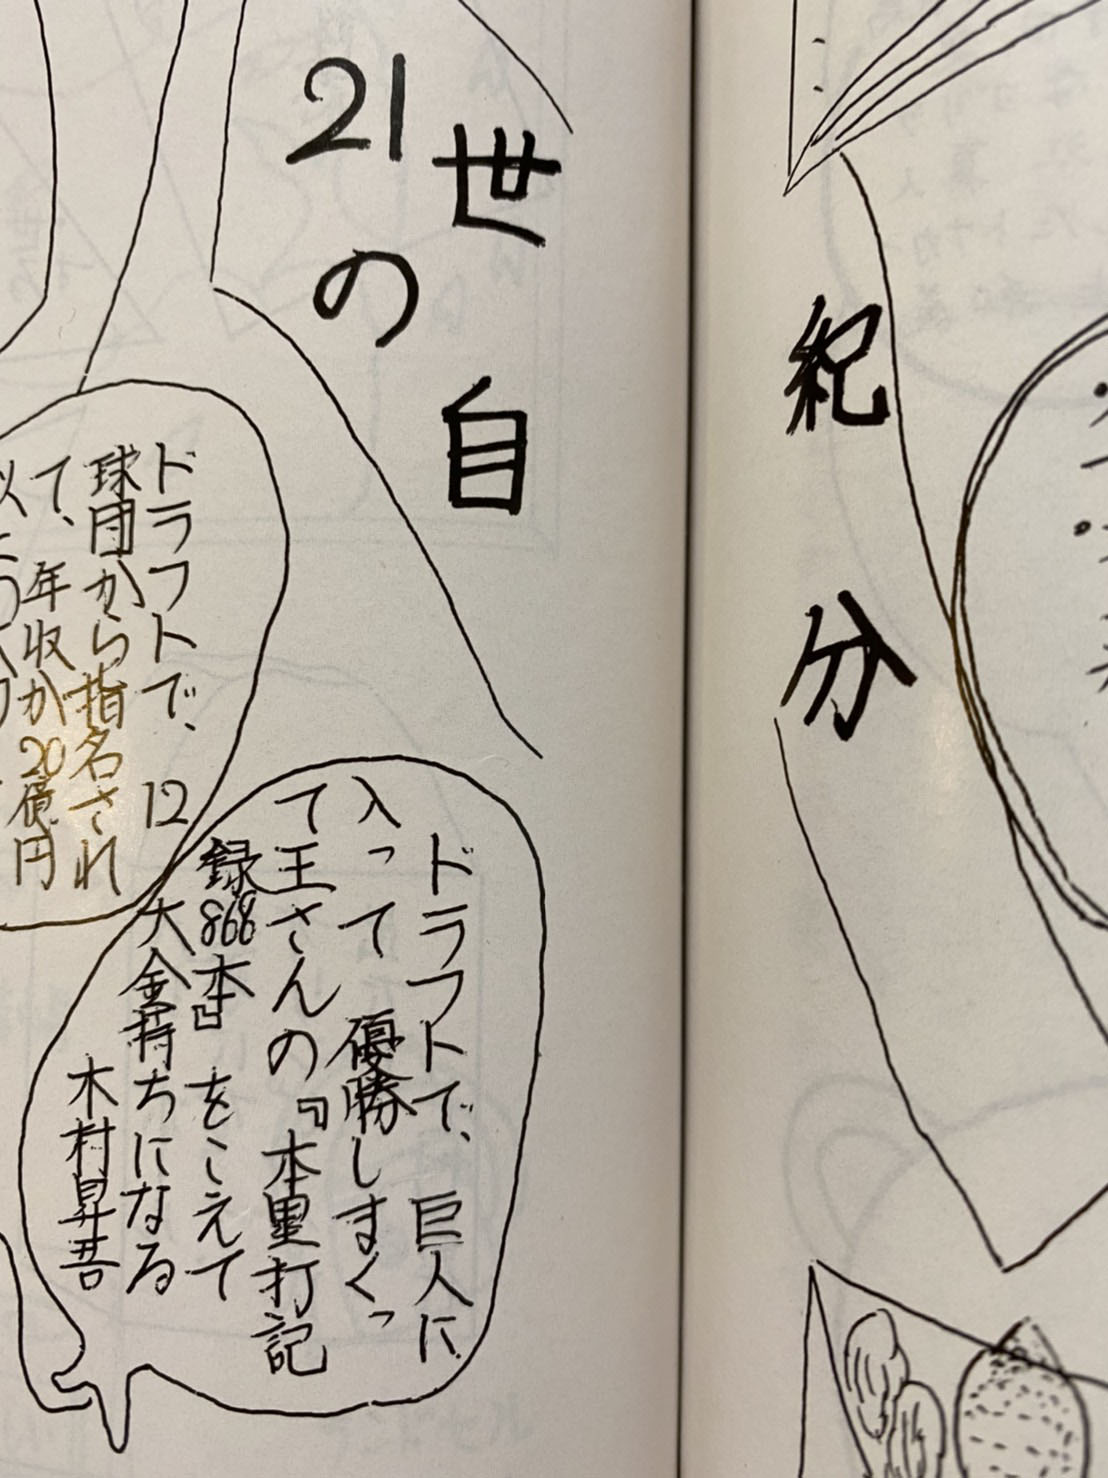 21世紀の自分
ドラフトで、巨人に
入って優勝しまくっ
て王さんの『本里打記
録868本』をこえて
大金持ちになる
木村昇吾
ドラフトで、12
球団から指名され
て、年収が20億円